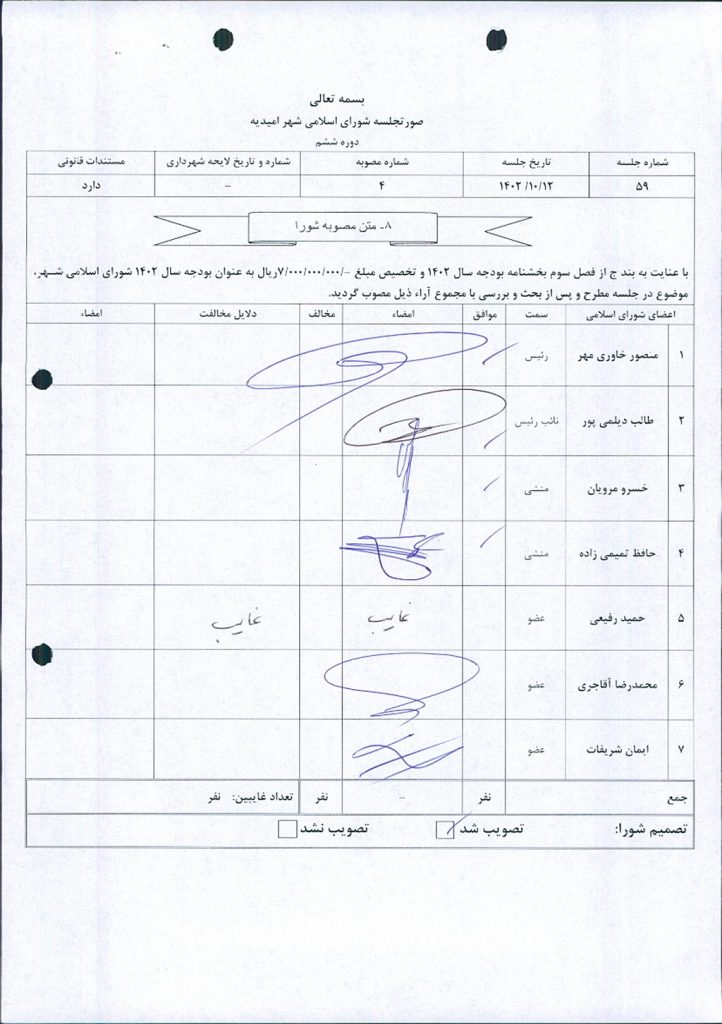 بسمه تعالی
صورتجلسه شورای اسلامی شهر امیدیه
دوره ششم
شماره جلسه تاریخ جلسه شماره مصوبه شماره و تاریخ لایحه شهرداری مستندات قانونی
۵۹ ۱۴۰۲/۱۰/۱۲ ۴ - دارد
۸- متن مصوبه شورا
با عنایت به بند ج از فصل سوم بخشنامه بودجه سال ۱۴۰۲ و تخصیص مبلغ -/۷/۰۰۰/۰۰۰/۰۰۰ریال به عنوان بودجه سال ۱۴۰۲ شورای اسلامی شهر،
موضوع در جلسه مطرح و پس از بحث و بررسی با مجموع آراء ذیل مصوب گردید.
اعضای شورای اسلامی سمت موافق امضاء مخالف دلایل مخالفت امضاء
۱ منصور خاوری مهر رئیس
۲ طالب دیلمی پور نائب رئیس
۳ خسرو مرویان منشی
۴ حافظ تمیمی زاده منشی
۵ حمید رفیعی عضو غایب غایب
۶ محمدرضا آقاجری عضو
۷ ایمان شریفات عضو
جمع نفر - نفر تعداد غایبین: نفر
تصمیم شورا: تصویب شد تصویب نشد